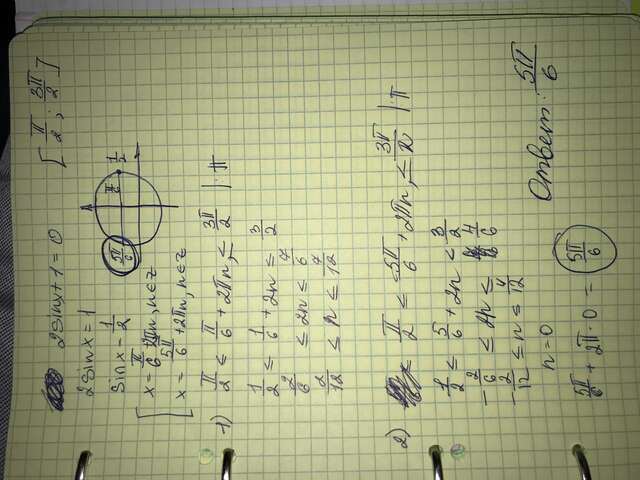 2sinx+1=0 [π/2 ; 3π/2]
2sinx=1
sinx=1/2
x=π/6+2πn, n∈z
x=5π/6+2πn, n∈z
5π/6 π/6 1/2
1) π/2 ≤ π/6 + 2πn, ≤ 3π/2 | :π
1/2 ≤ 1/6 + 2n ≤ 3/2
2/6 ≤ 2n ≤ 7/6
2/12 ≤ n ≤ 7/12
2) π/2 ≤ 5π/6 + 2πn, ≤ 3π/2 | π
1/2 ≤ 5/6 + 2n ≤ 3/2
-2/6 ≤ 2n ≤ 4/6
-2/12 ≤ n ≤ 4/12
n=0
5π/6 + 2π·0 = 5π/6
Ответ: 5π/6